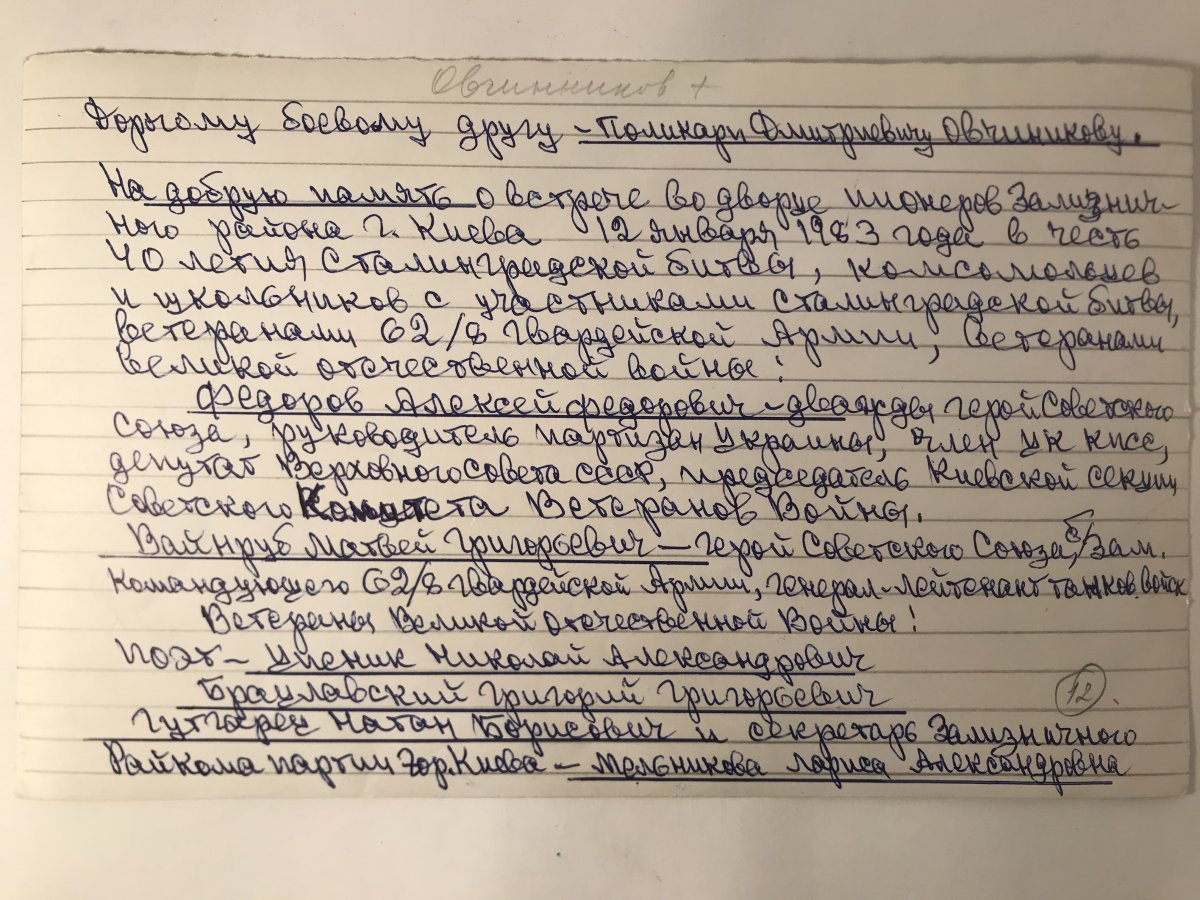 Овчинников +
Дорогому боевому другу – Поликарп Дмитриевичу Овчиникову.
На добрую память о встрече во дворце пионеров Зализнич-
ного района г. Киева 12 января 1983 года в честь
40 летия Сталинградской битвы, комсомольцев
и школьников с участниками Сталинградской битвы,
ветеранами 62/8 Гвардейской Армии, Ветеранами
великой отечественной войны:
Федоров Алексей Федорович – дважды герой Советского
союза, руководитель партизан Украины, член ЦК КПСС,
депутат Верховного совета СССР, председатель Киевской секции
Советского Комитета Ветеранов Войны.
Вайнруб Матвей Григорьевич – герой Советского Союза, б/зам.
командующего 62/8 Гвардейской Армии, генерал-лейтенант танков. войск
Ветераны Великой отечественной Войны!
Поэт – Упеник Николай Александрович
Брацлавский Григорий Григорьевич
Гутгарец Натан Борисович и секретарь Зализничного
Райкома партии гор. Киева – Мельникова Лариса Александровна
12